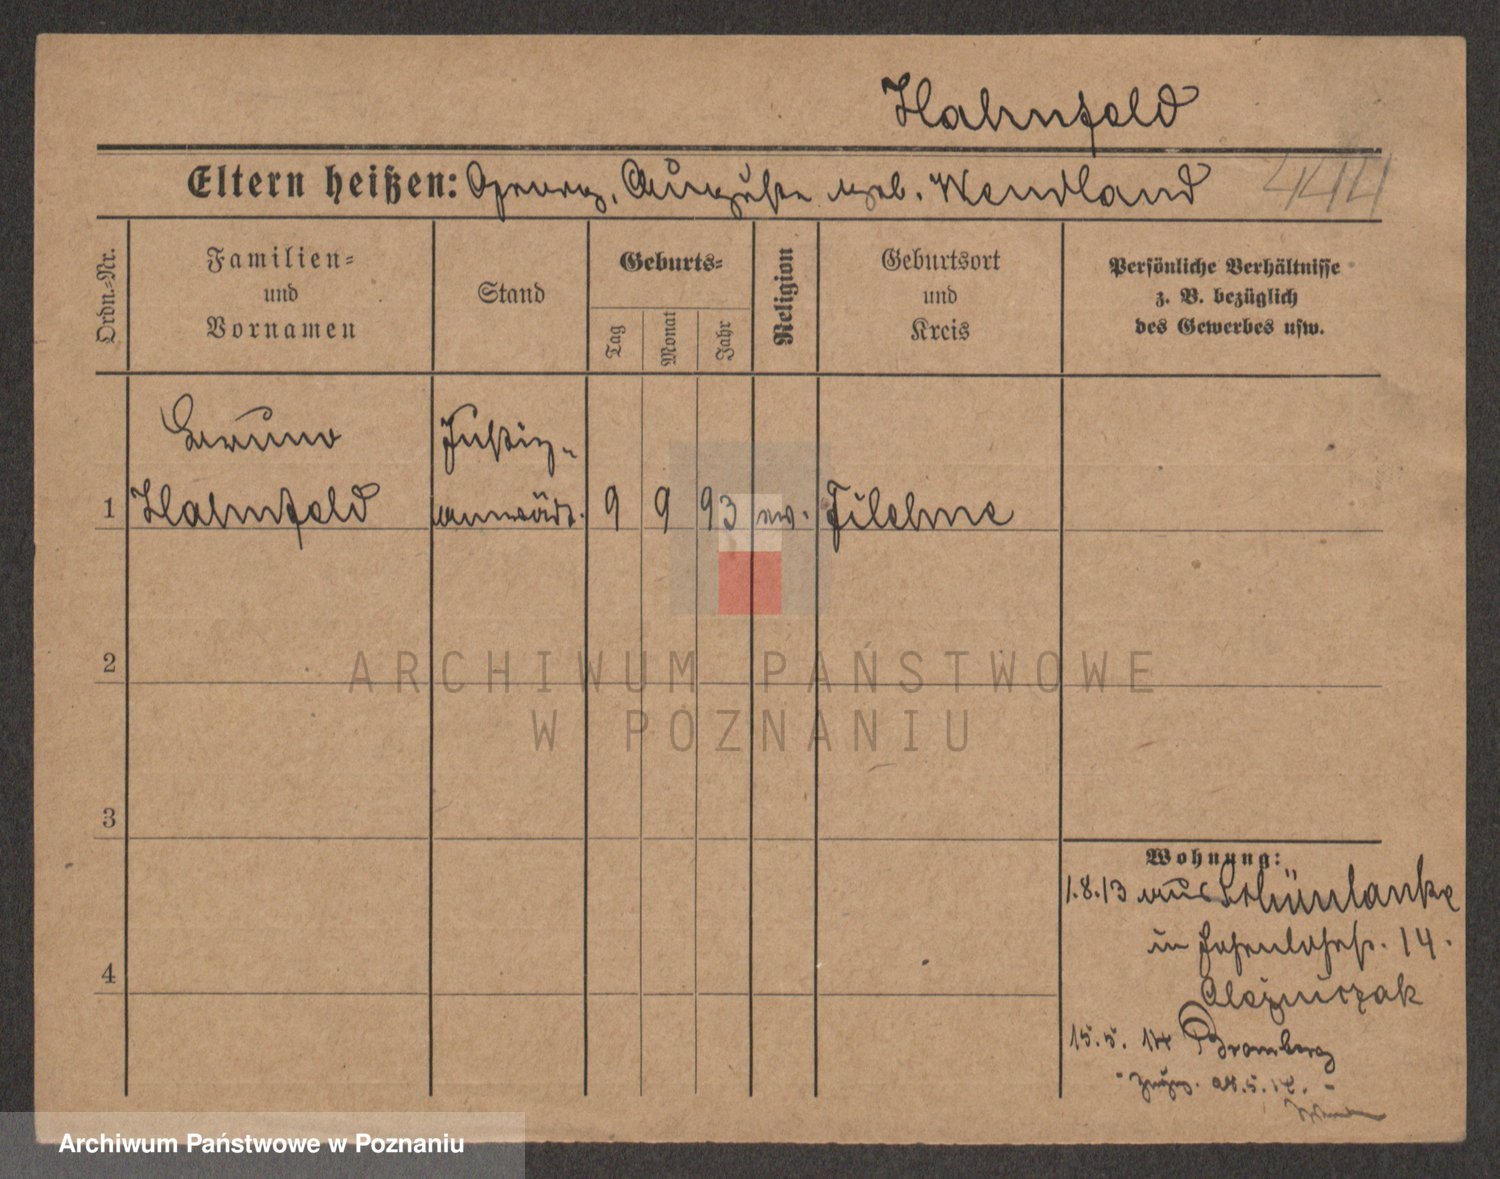 Hahnfeld
Eltern heißen: Georg, Auguste geb. Wendland
444
Ordn.-Nr.
Familien-
und
Vornamen
Stand
Geburts-
Tag
Monat
Jahr
Religion
Geburtsort
und
Kreis
Persönliche Verhältnisse
z. B. bezüglich
des Gewerbes usw.
Bruno
Hahnfeld
Justiz-
anwärt.
1
9 9 93 ev. Filehne
2
3
4
Wohnung:
1.8.13 aus Schönlanke
in 14.
15.5. 14 Bromberg
ARCHIWUM PAŃSTWOWE
W POZNANIU
Archiwum Państwowe w Poznaniu